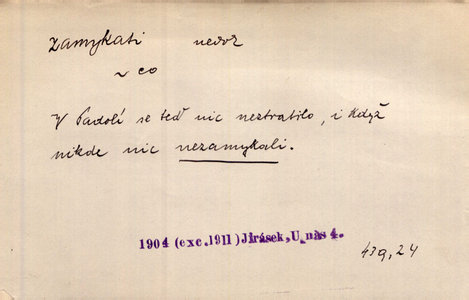 zamykati nedok
~ co
V Padolí se teď nic neztratilo, i když
nikde nic nezamykali.
1904 (exc. 1911) Jirásek, U nás 4.
439, 24